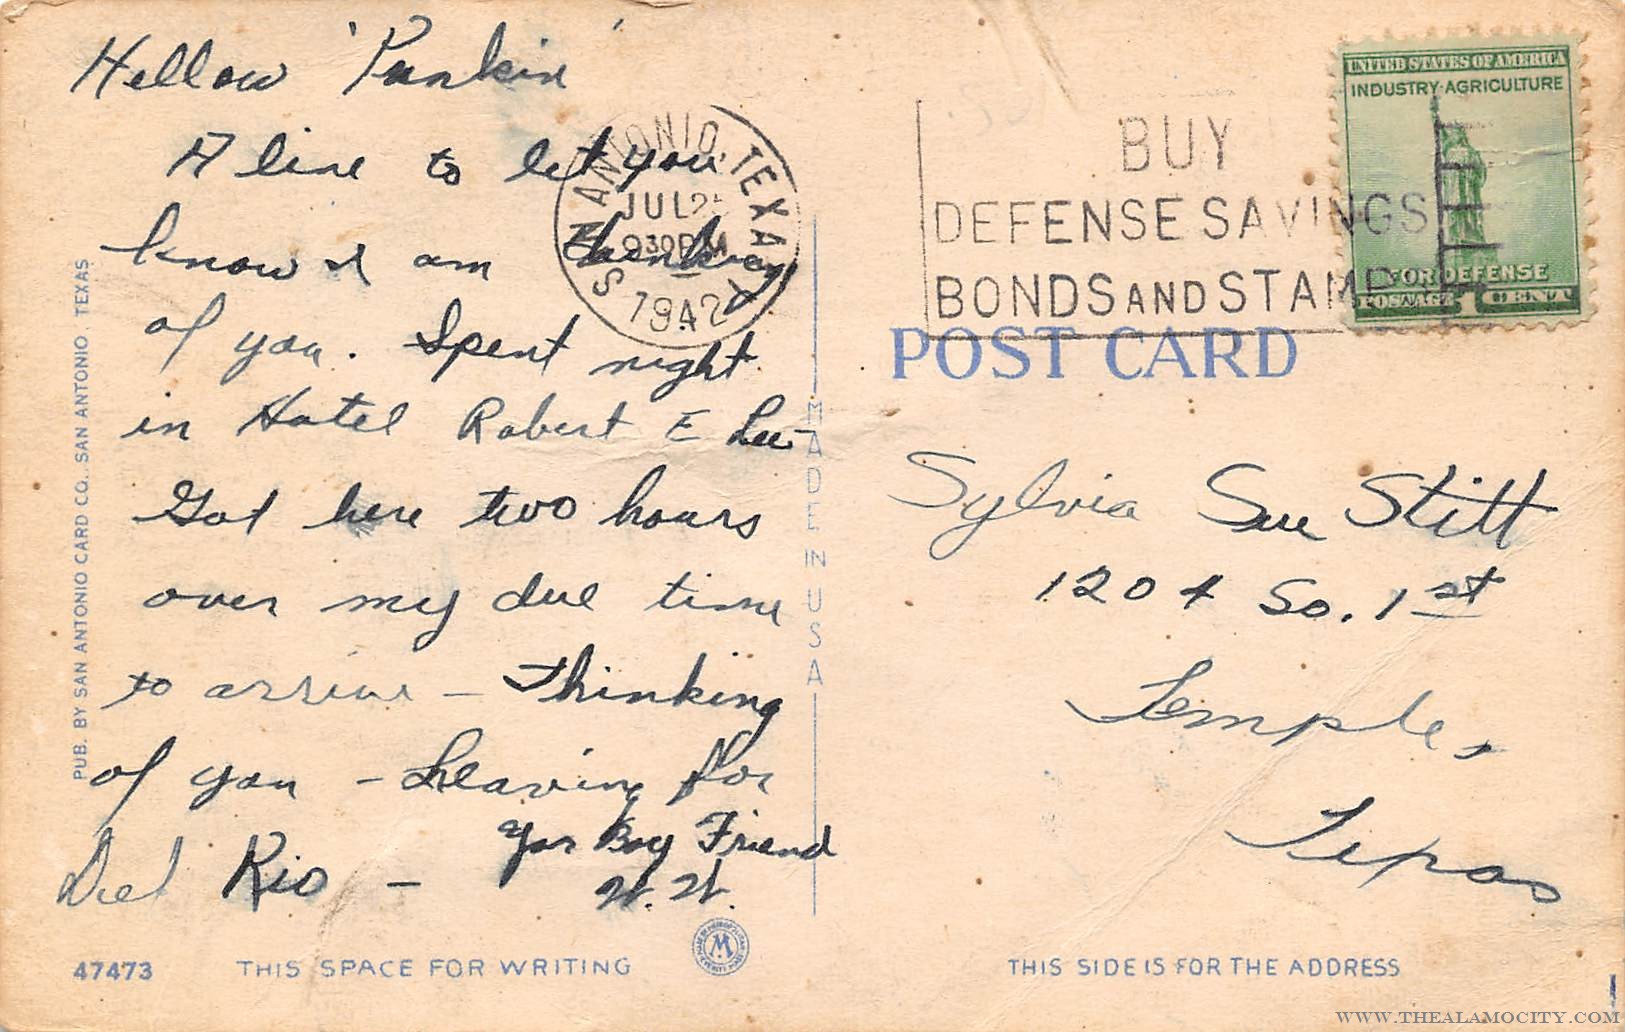 Hellow 'Punkin'
A line to let you
know I am thinking
of you. Spent night
in Hotel Robert E Lee-
Got here two hours
over my due time
to arrive - Thinking
of you - Leaving for
Del Rio -
Your Boy Friend
W. W.
PUB. BY SAN ANTONIO CARD CO., SAN ANTONIO, TEXAS
47473
THIS SPACE FOR WRITING
MADE IN U S A
SAN ANTONIO, TEXAS
JUL 25
930 PM
1942
BUY
DEFENSE SAVINGS
BONDS AND STAMPS
UNITED STATES OF AMERICA
INDUSTRY·AGRICULTURE
FOR DEFENSE
POSTAGE 1 CENT
POST CARD
Sylvia Sue Stitt
1204 So. 1st
Temple,
Texas
THIS SIDE IS FOR THE ADDRESS
WWW.THEALAMOCITY.COM